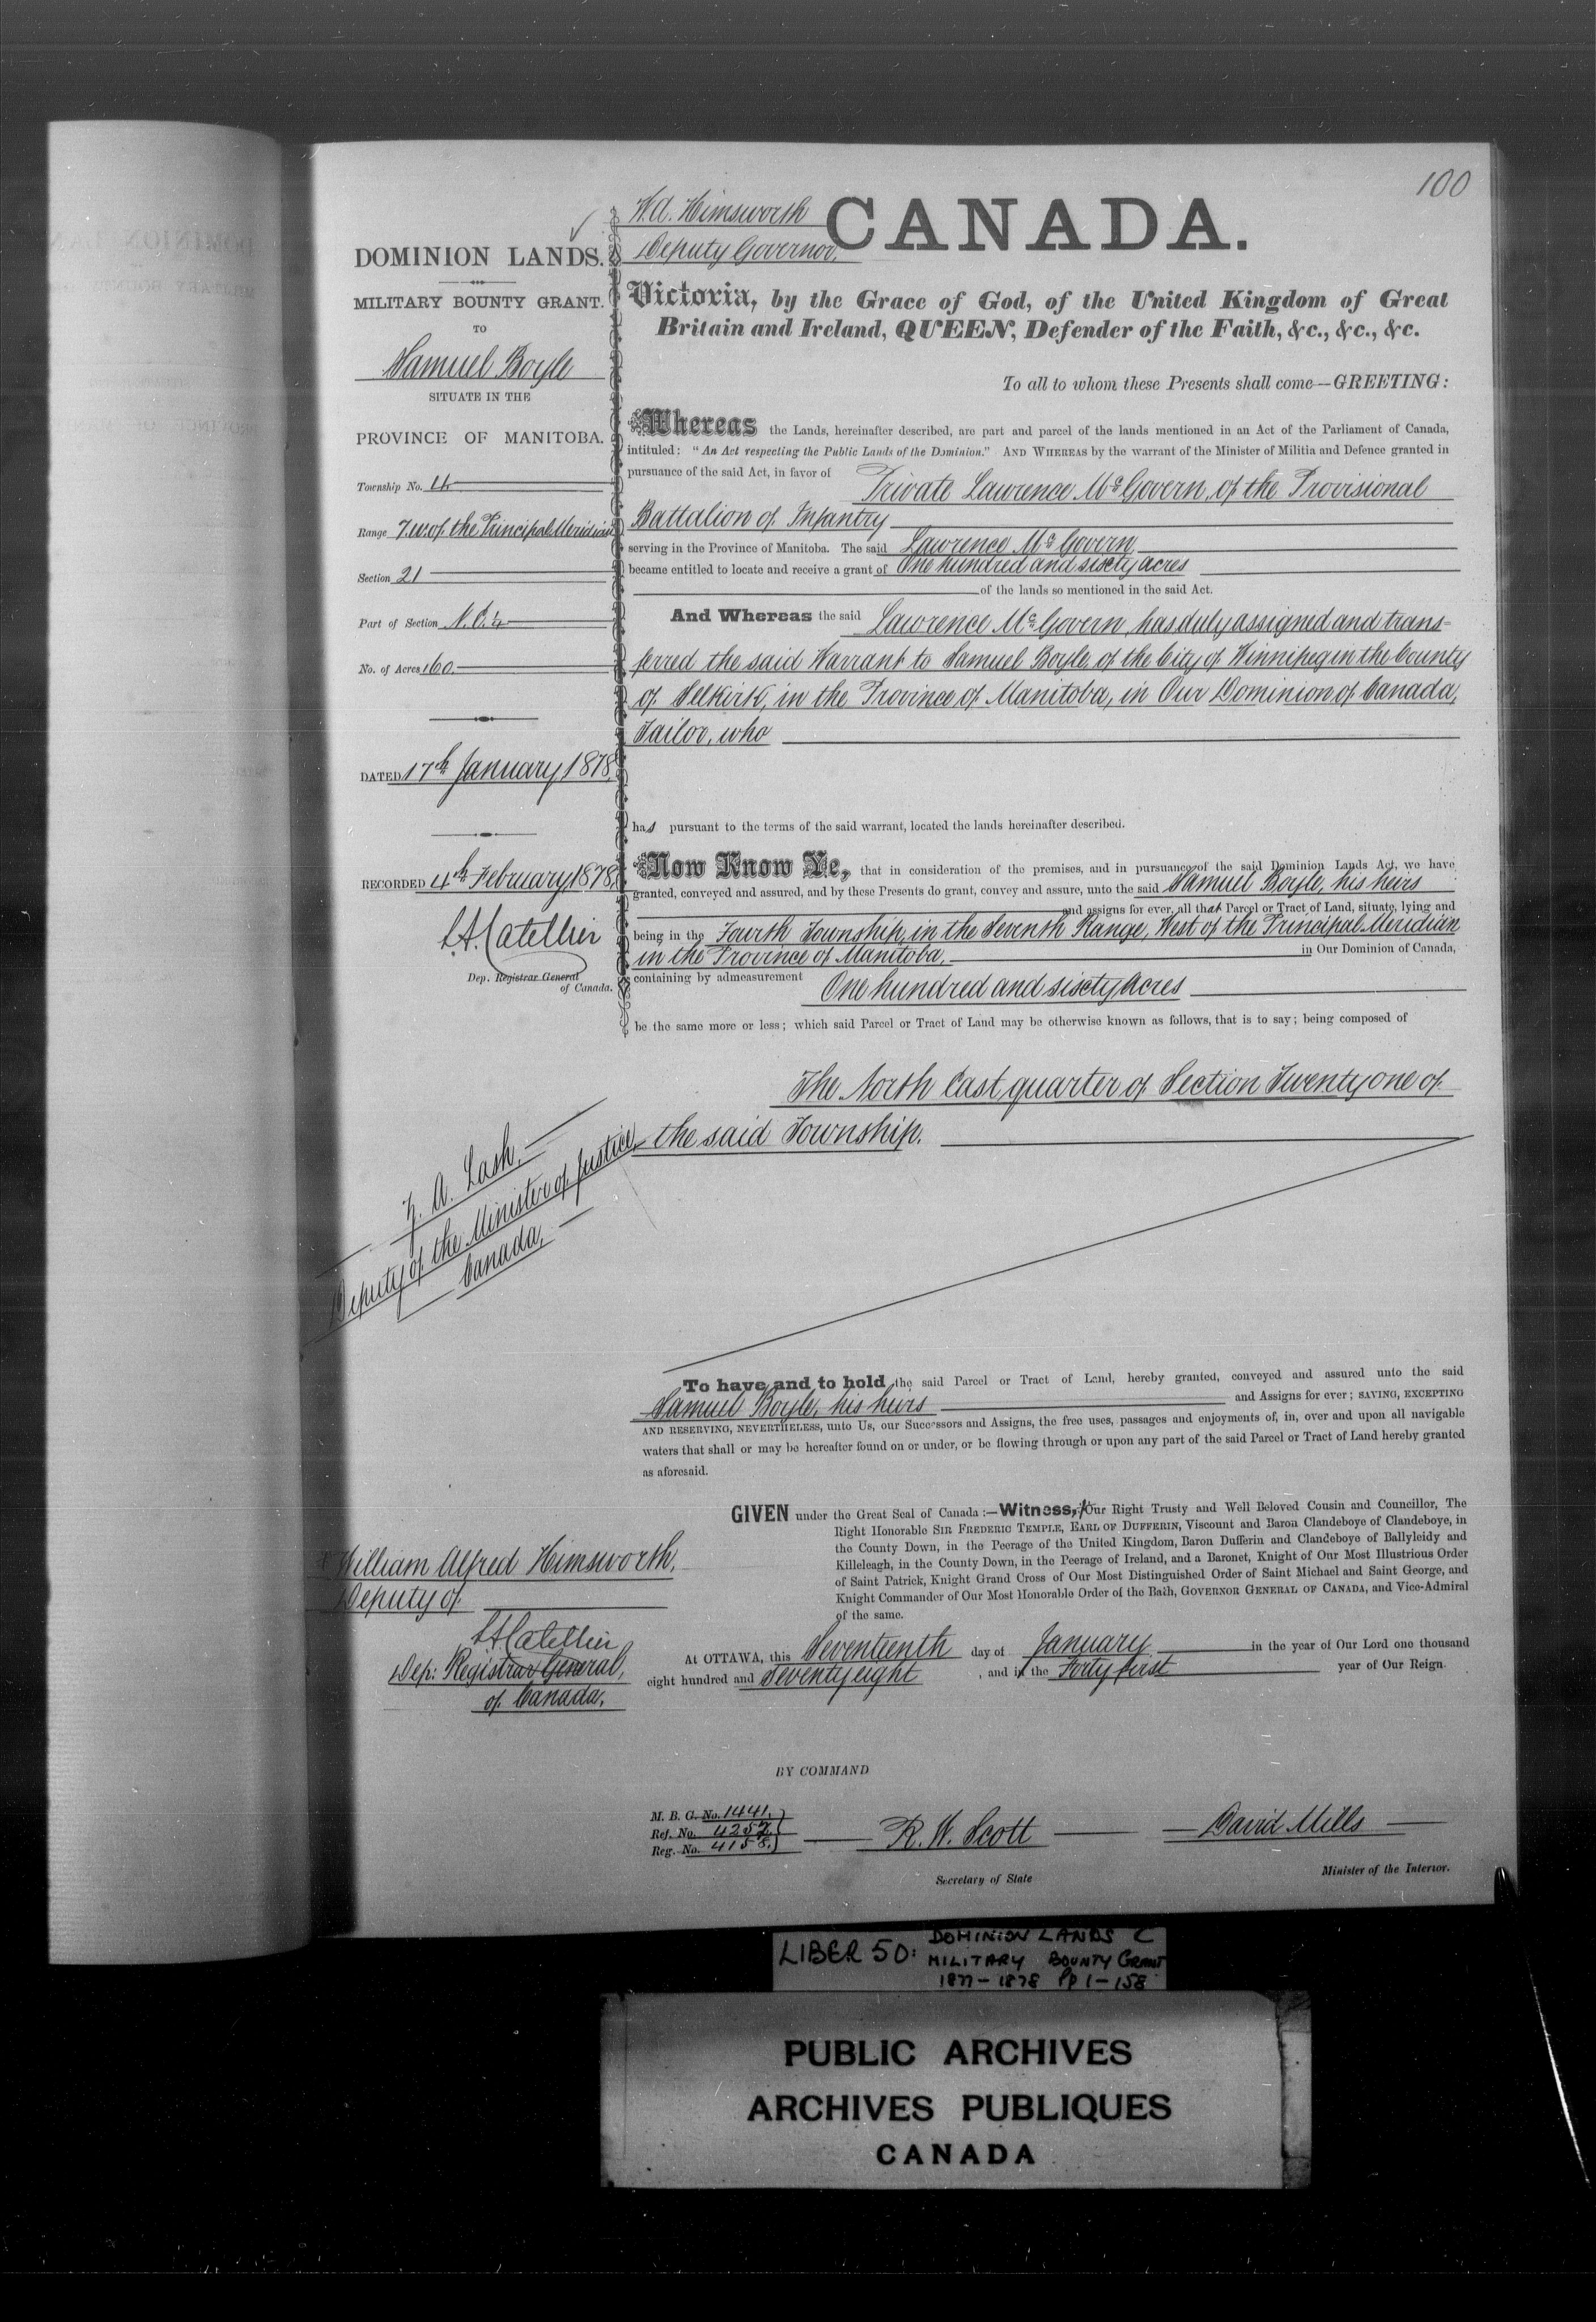 100
W. A. Himsworth
Deputy Governor.
CANADA.
DOMINION LANDS.
MILITARY BOUNTY GRANT.
TO
Samuel Boyle
SITUATE IN THE
PROVINCE OF MANITOBA.
Township No. 4
Range 7. W. of the Principal Meridian
Section 21
Part of Section N.E. ¼
No. of Acres 160.
DATED 17th January 1878,
RECORDED 4th February 1878,
L. A. Catellier
Dep. Registrar General
of Canada.
Victoria, by the Grace of God, of the United Kingdom of Great
Britain and Ireland, QUEEN, Defender of the Faith, &c., &c., &c.
To all to whom these Presents shall come—GREETING:
Whereas the Lands, hereinafter described, are part and parcel of the lands mentioned in an Act of the Parliament of Canada,
intituled: "An Act respecting the Public Lands of the Dominion." AND WHEREAS by the warrant of the Minister of Militia and Defence granted in
pursuance of the said Act, in favor of Private Lawrence McGovern, of the Provisional
Battalion of Infantry
serving in the Province of Manitoba. The said Lawrence McGovern
became entitled to locate and receive a grant of One hundred and sixty acres
of the lands so mentioned in the said Act.
And Whereas the said Lawrence McGovern, has duly assigned and trans=
ferred the said Warrant to Samuel Boyle, of the City of Winnipeg in the County
of Selkirk, in the Province of Manitoba, in Our Dominion of Canada,
Tailor, who
has pursuant to the terms of the said warrant, located the lands hereinafter described.
Now Know Ye, that in consideration of the premises, and in pursuance of the said Dominion Lands Act, we have
granted, conveyed and assured, and by these Presents do grant, convey and assure, unto the said Samuel Boyle, his heirs
and assigns for ever, all that Parcel or Tract of Land, situate, lying and
being in the Fourth Township, in the Seventh Range, West of the Principal Meridian
in the Province of Manitoba, in Our Dominion of Canada,
containing by admeasurement One hundred and sixty acres
be the same more or less; which said Parcel or Tract of Land may be otherwise known as follows, that is to say; being composed of
The North East quarter of Section Twenty one of
the said Township.
Z. A. Lash,
Deputy of the Minister of Justice,
Canada,
To have and to hold the said Parcel or Tract of Land, hereby granted, conveyed and assured unto the said
Samuel Boyle, his heirs and Assigns for ever; SAVING, EXCEPTING
AND RESERVING, NEVERTHELESS, unto Us, our Successors and Assigns, the free uses, passages and enjoyments of, in, over and upon all navigable
waters that shall or may be hereafter found on or under, or be flowing through or upon any part of the said Parcel or Tract of Land hereby granted
as aforesaid.
GIVEN under the Great Seal of Canada:—Witness, Our Right Trusty and Well Beloved Cousin and Councillor, The
Right Honorable SIR FREDERIC TEMPLE, EARL OF DUFFERIN, Viscount and Baron Clandeboye of Clandeboye, in
the County Down, in the Peerage of the United Kingdom, Baron Dufferin and Clandeboye of Ballyleidy and
Killeleagh, in the County Down, in the Peerage of Ireland, and a Baronet, Knight of Our Most Illustrious Order
of Saint Patrick, Knight Grand Cross of Our Most Distinguished Order of Saint Michael and Saint George, and
Knight Commander of Our Most Honorable Order of the Bath, GOVERNOR GENERAL OF CANADA, and Vice-Admiral
of the same.
William Alfred Himsworth,
Deputy of
L. A. Catellier
Dep: Registrar General,
of Canada,
At OTTAWA, this Seventeenth day of January in the year of Our Lord one thousand
eight hundred and Seventy eight, and in the Forty first year of Our Reign.
BY COMMAND
M. B. G. No. 1441.
Ref. No. 4257.
Reg. No. 4158.
R. W. Scott
Secretary of State
David Mills
Minister of the Interior.
LIBER 50: DOMINION LANDS C
MILITARY BOUNTY GRANT
1877-1878 Pp 1-158
PUBLIC ARCHIVES
ARCHIVES PUBLIQUES
CANADA